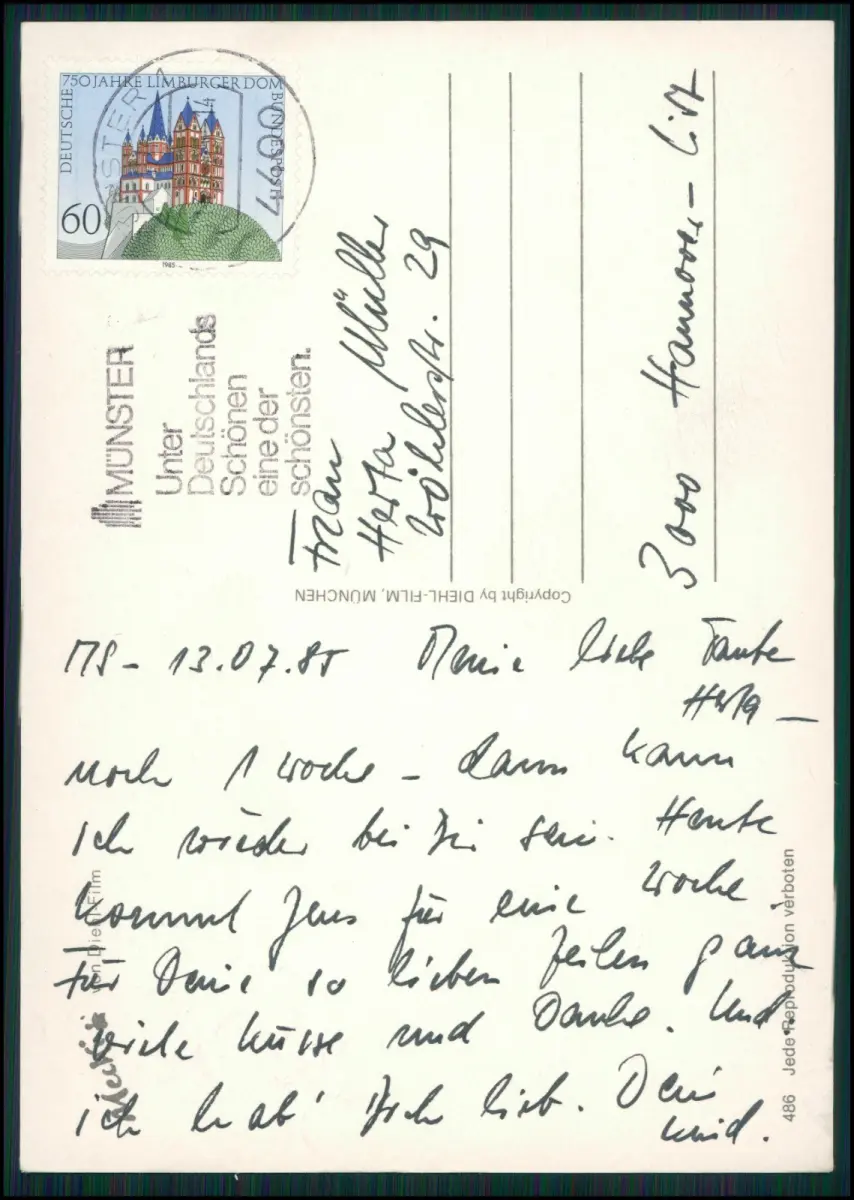 DEUTSCHE
750 JAHRE LIMBURGER DOM
BUNDESPOST
60
1985
4400
MÜNSTER
Unter
Deutschlands
Schönen
eine der
schönsten.
Frau
Herta Müller
Wöhlerstr. 29
3000 Hannover-List
Copyright by DIEHL-FILM, MÜNCHEN
MS - 13.07.85 Meine liebe Tante
Herta -
noch 1 Woche - dann kann
ich wieder bei Dir sein. Heute
kommt Jens für eine Woche.
Für Deine so lieben Zeilen ganz
viele Küsse und Danke. Und
ich hab' Dich lieb. Dein
Mecki von Diehl-Film
486 Jede Reproduktion verboten